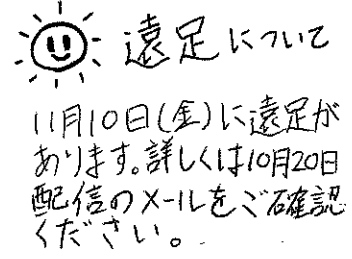 遠足について
11月10日(金)に遠足が
あります。詳しくは10月20日
配信のメールをご確認
ください。